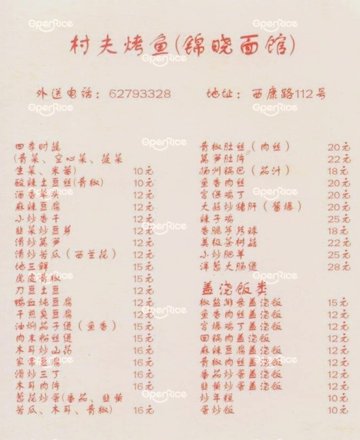 村夫烤鱼(锦晓面馆)
外送电话: 62793328 地址: 西康路112号
四季时蔬
(青菜、空心菜、菠菜
生菜、米苋) 10元
酸辣土豆丝(青椒) 10元
酒香草头 12元
麻辣豆腐 12元
小炒香干 12元
韭菜炒豆芽 12元
清炒莴笋 12元
清炒苦瓜(西兰花) 12元
地三鲜 15元
虎皮青椒 15元
刀豆土豆 12元
鸭血炖豆腐 12元
干煎臭豆腐 12元
油焖茄子煲(鱼香) 15元
肉末粉丝煲 15元
木耳炒山药 16元
家常豆腐 16元
清炒三丁 16元
木耳肉片 16元
葱花炒蛋(番茄、韭黄
苦瓜、木耳、青椒) 16元
青椒肚丝(肉丝) 20元
莴笋肚片 20元
扬州锅巴(茄汁) 18元
鱼香肉丝 20元
宫保鸡丁 20元
大蒜炒猪肝(酱爆) 20元
辣子鸡 25元
香脆芹
美极茶树菇 22元
小炒肥羊 25元
洋葱大肠煲 28元
盖浇饭类
椒盐排条盖浇饭 15元
鱼香肉丝盖浇饭 12元
宫爆鸡丁盖浇饭 12元
回锅肉盖浇饭 12元
麻辣豆腐盖浇饭 12元
青椒肉丝盖浇饭 12元
番茄炒蛋盖浇饭 12元
韭黄炒蛋盖浇饭 12元
炒年糕 10元
蛋炒饭 10元
OpenRice